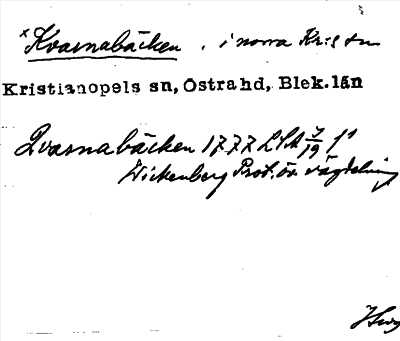 x Kvarnabäcken, i norra Kr:s sn
Kristianopels sn, Östrahd, Blek.län
Qvarnabäcken 1777 LSA 7/19 f1
Wickenberg Prot. öv. vägdelning